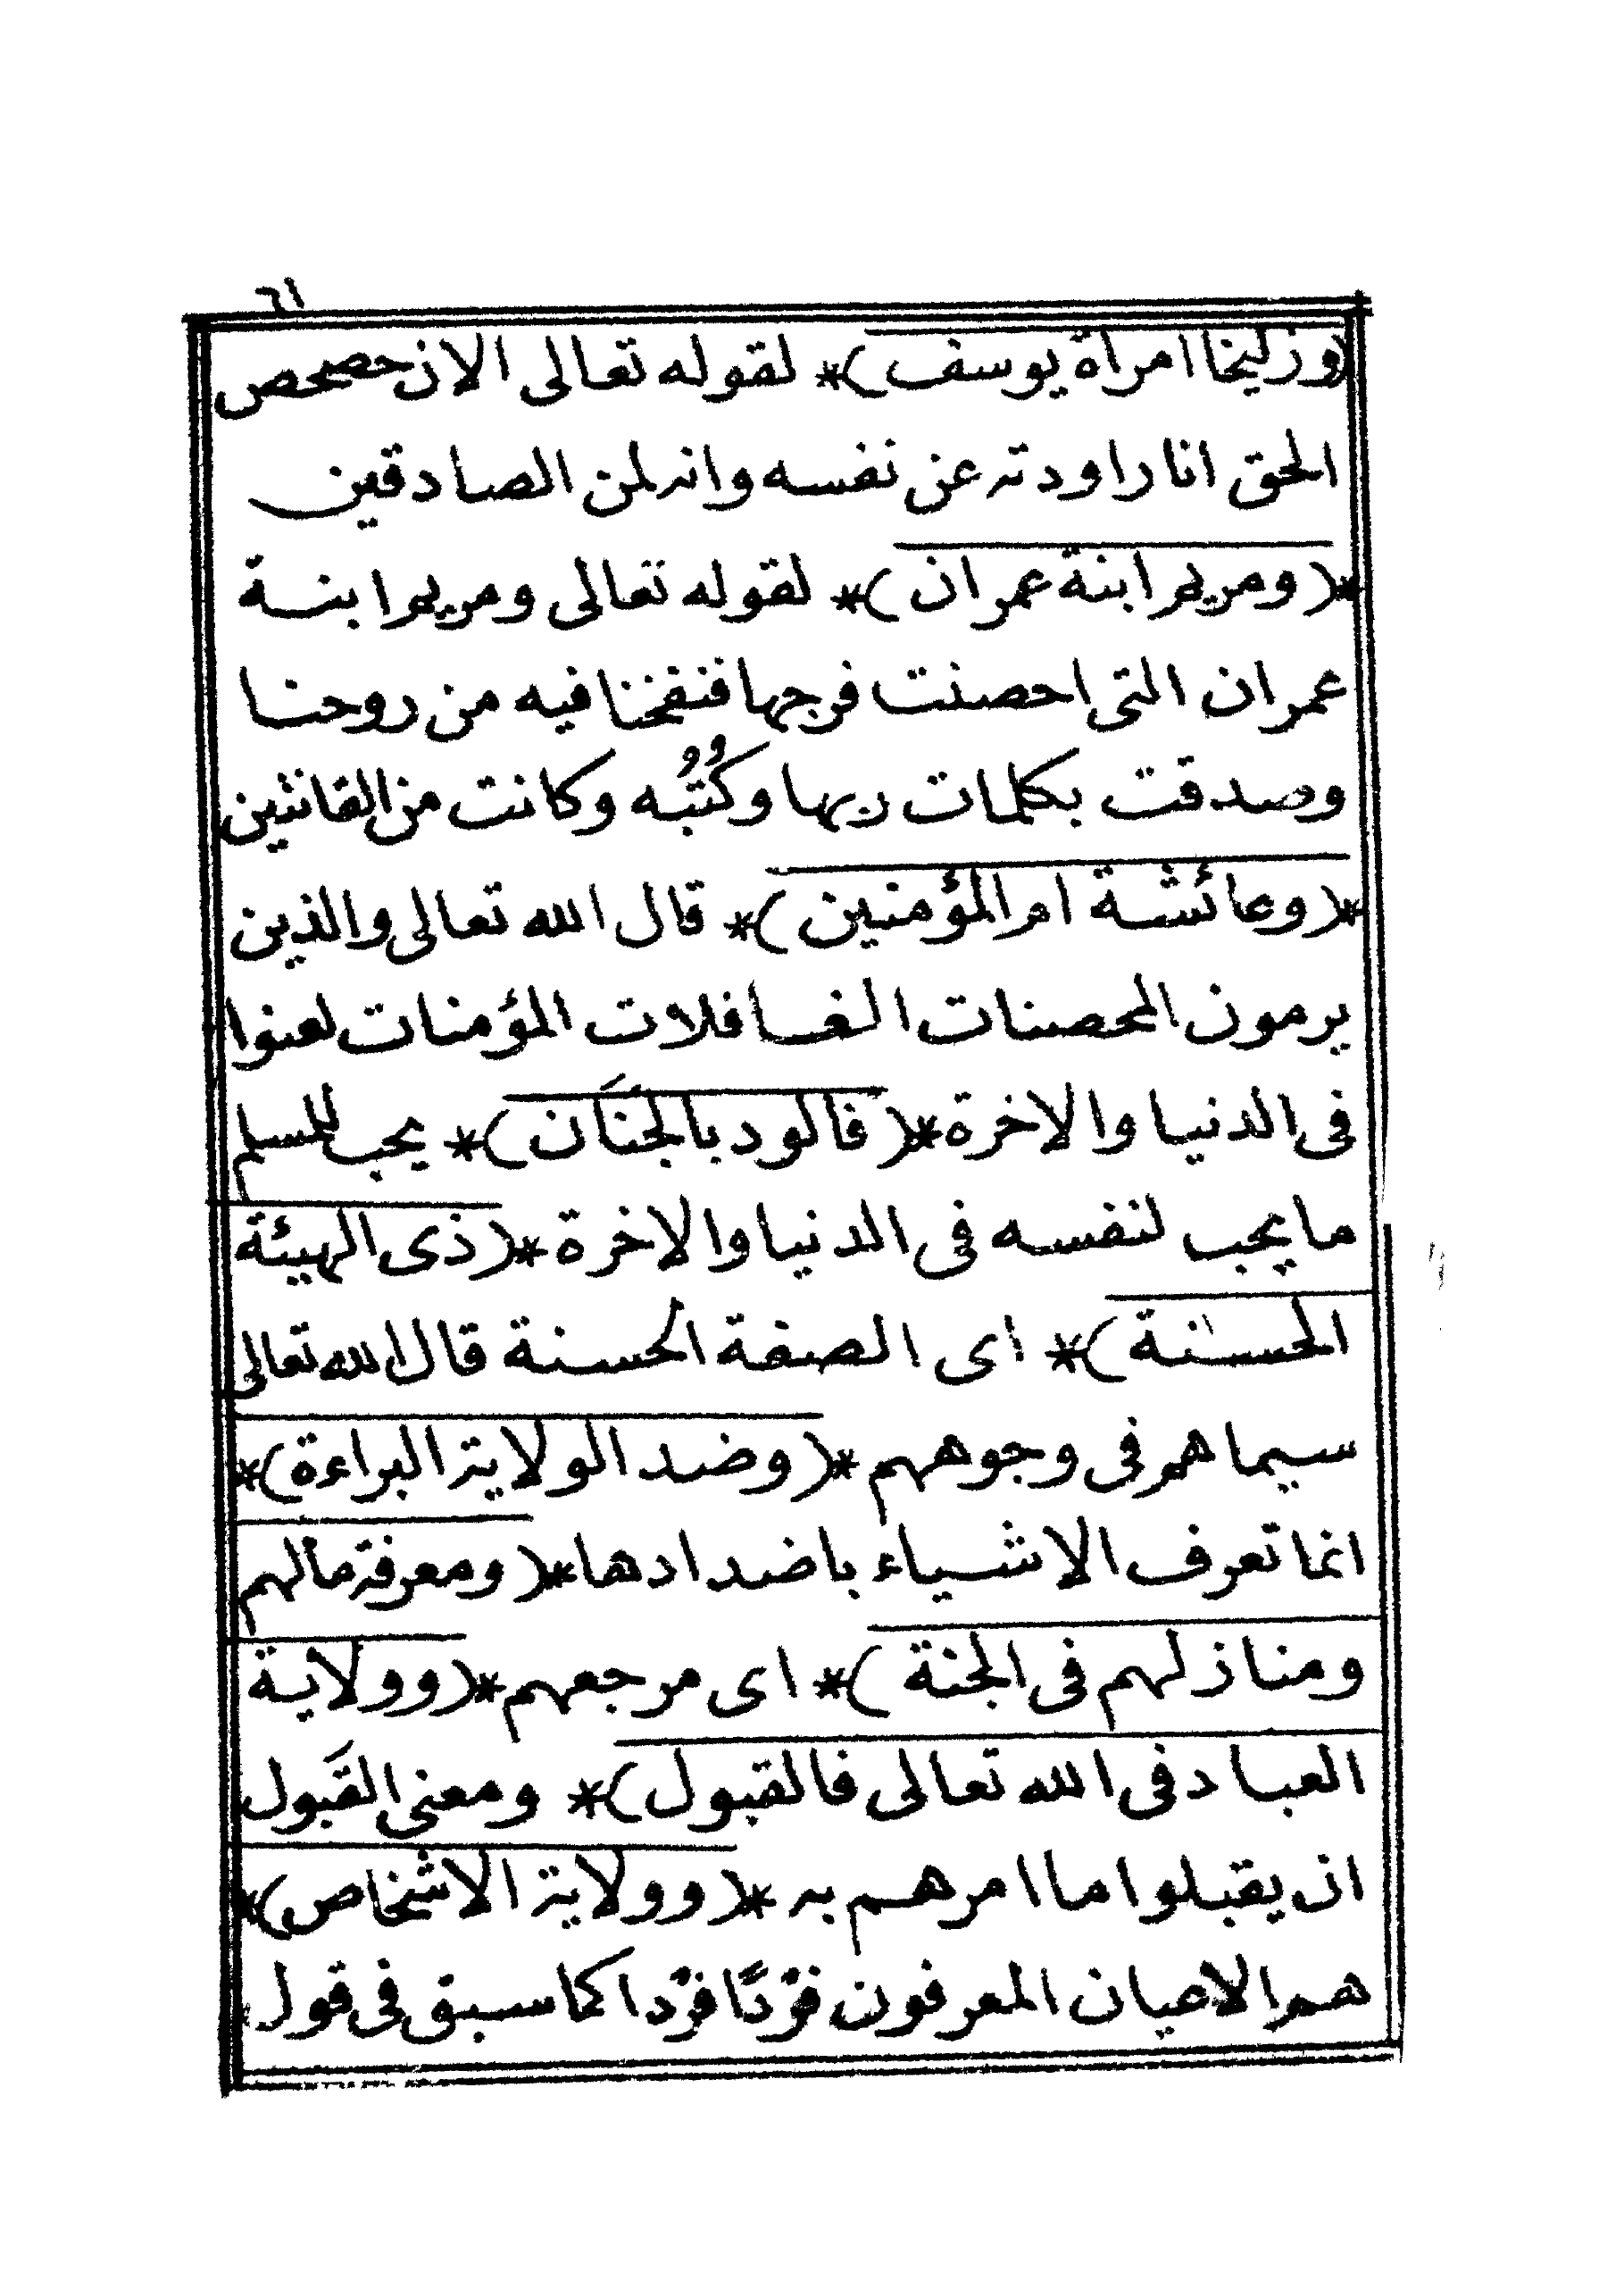 ٦١
(وزليخا امرأة يوسف)* لقوله تعالى الان حصحص
الحق انا راودته عن نفسه وانه لمن الصادقين
*(ومريم ابنة عمران)* لقوله تعالى ومريم ابنة
عمران التى احصنت فرجها فنفخنا فيه من روحنا
وصدقت بكلمات ربها وكُتُبه وكانت من القانتين
*(وعائشة ام المؤمنين)* قال الله تعالى والذين
يرمون المحصنات الغافلات المؤمنات لعنوا
فى الدنيا والاخرة *(فالود بالجَنَان)* يحب للمسلم
ما يحب لنفسه فى الدنيا والاخرة *(ذى الهيئة
الحسنة)* اى الصفة الحسنة قال الله تعالى
سيماهم فى وجوههم *(وضد الولاية البراءة)*
انما تعرف الاشياء باضدادها *(ومعرفة مألهم
ومنازلهم فى الجنة)* اى مرجعهم *(وولاية
العباد فى الله تعالى فالقبول)* ومعنى القَبول
ان يقبلوا ما امرهم به *(وولاية الاشخاص)*
هم الاعيان المعرفون فرْدًا فرْدا كما سبق فى قول